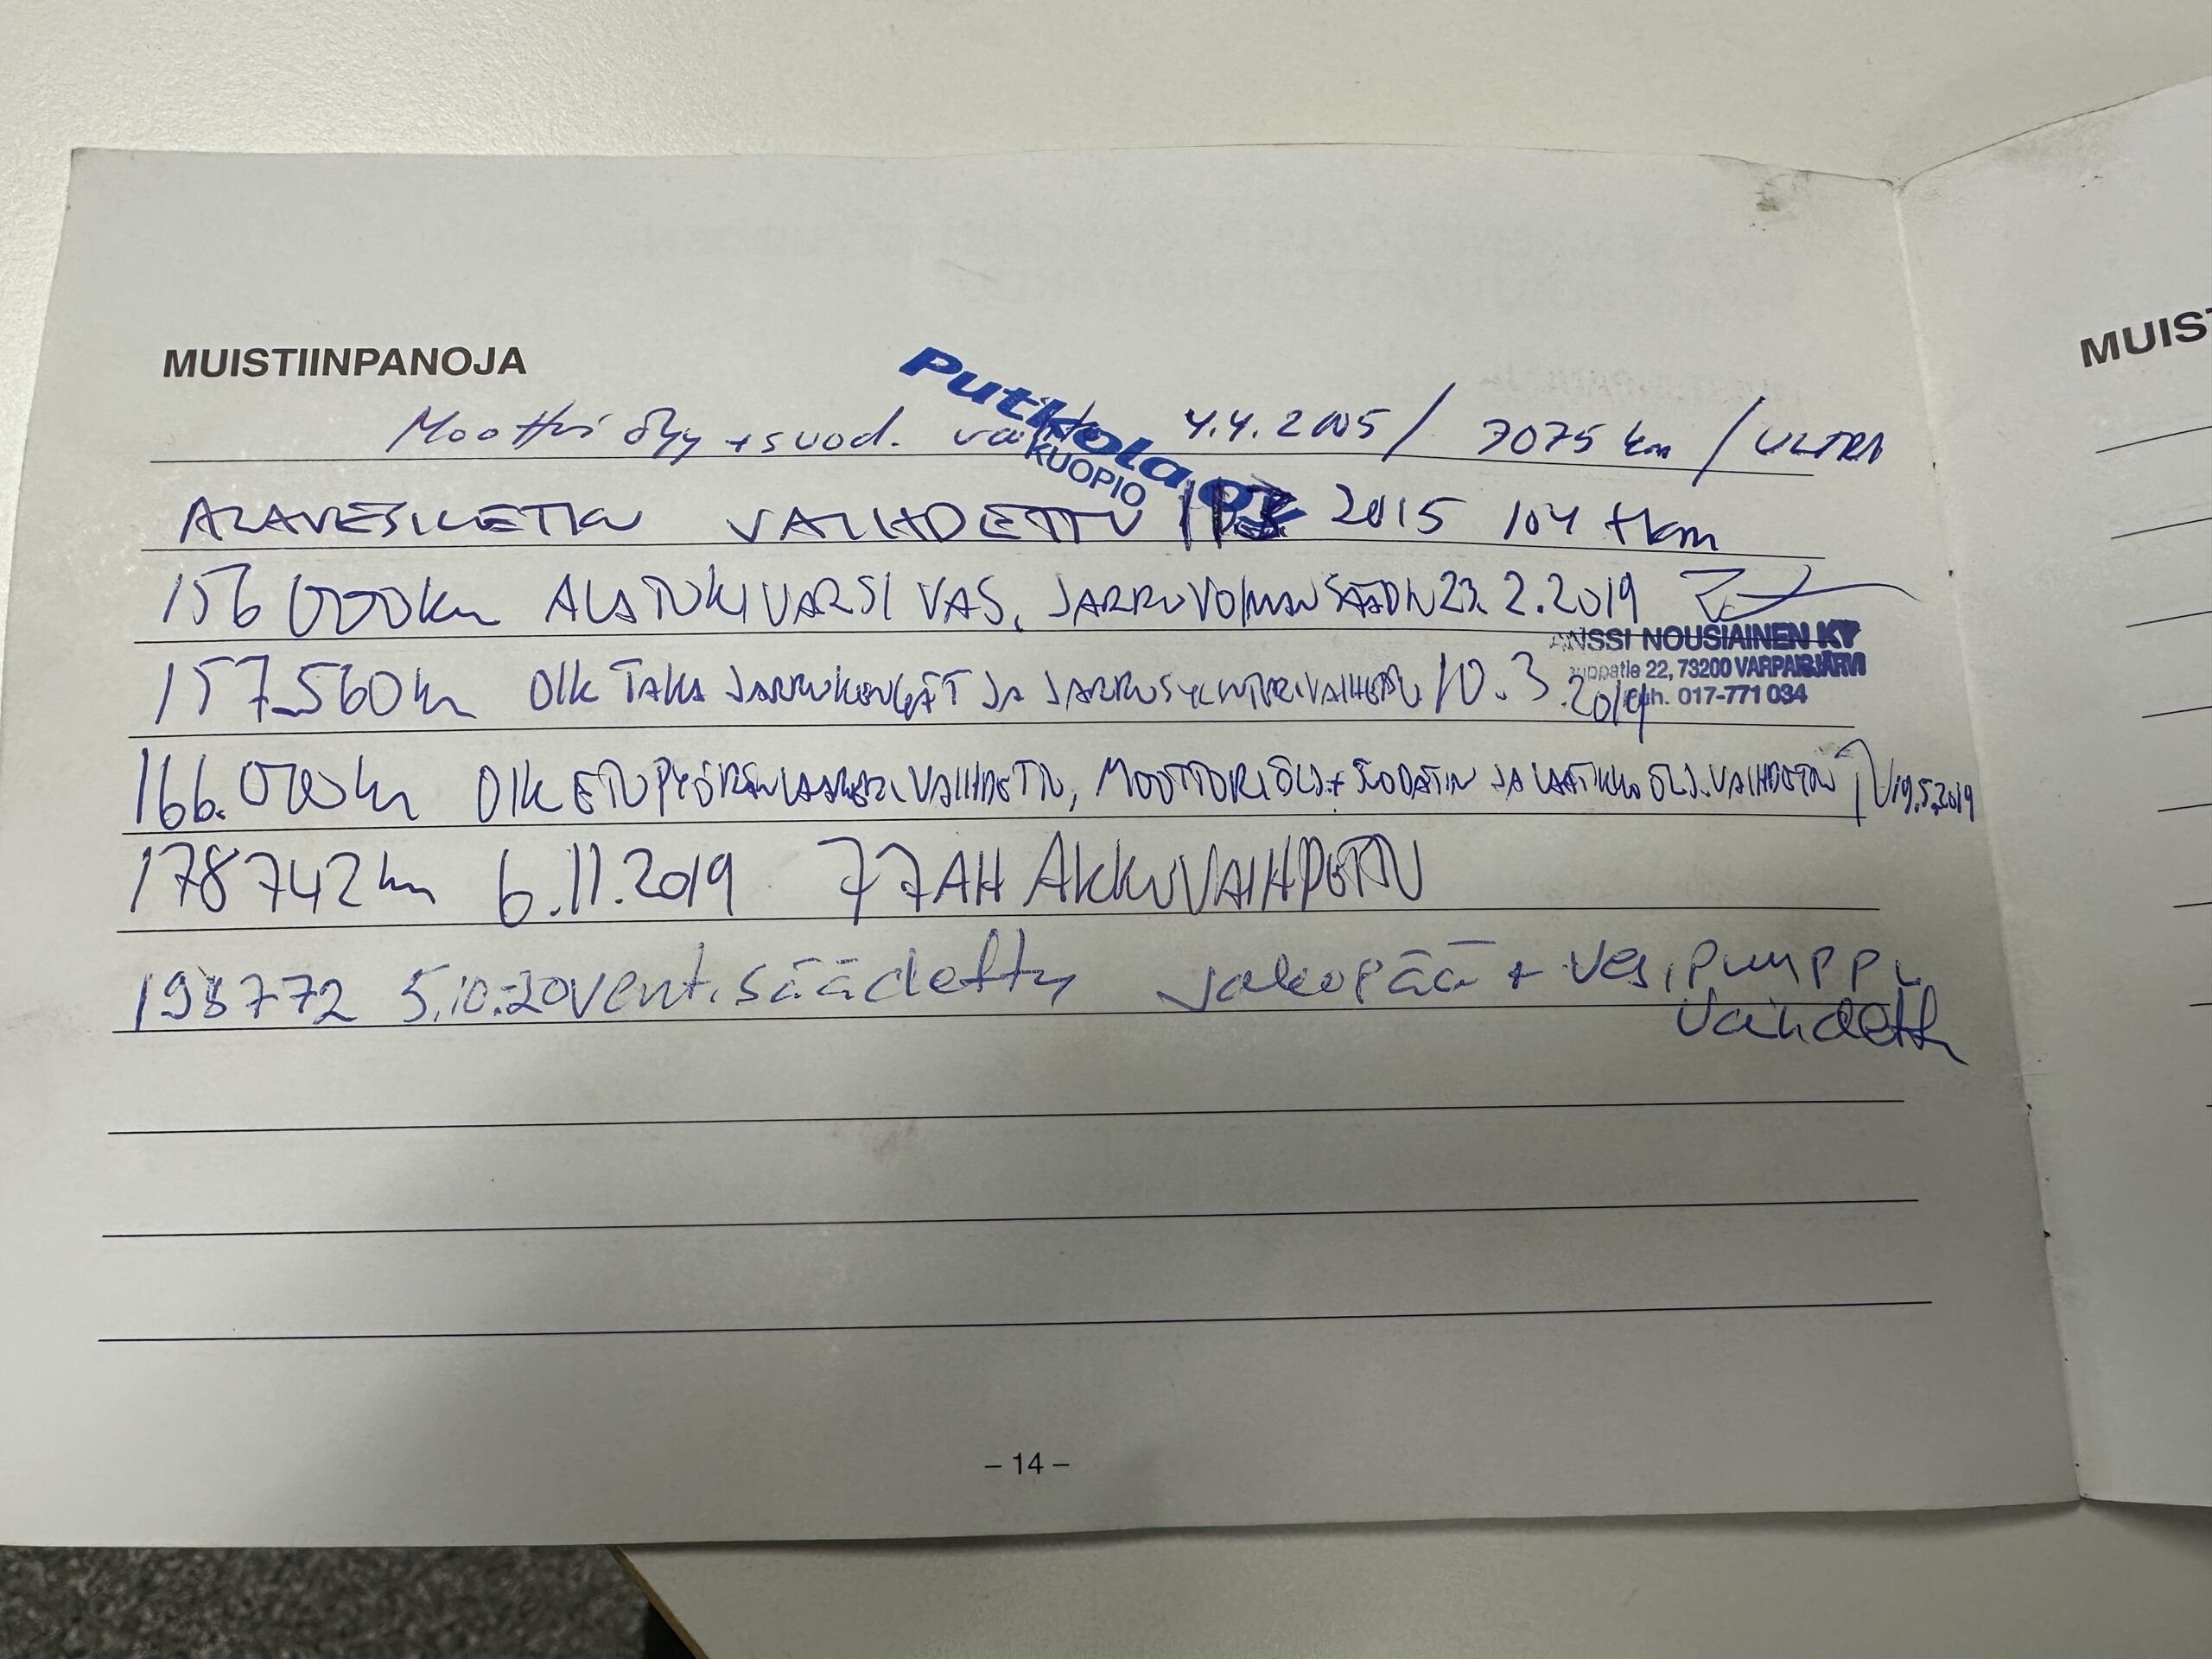 MUISTIINPANOJA
MUIS
Putkola Oy
KUOPIO
Moottori öljy + suod. vaihto 4.4.2005 / 7075 km / ULTRA
ALAVESILETKU VAIHDETTU 2015 104 tkm
156 000km ALATUKIVARSI VAS. JARRUVOIMANSÄÄDIN 23.2.2019
ANSSI NOUSIAINEN KY
22, 73200 VARPAISJÄRVI
Puh. 017-771 034
157.560km OIK TAKA JARRUKENGÄT JA JARRUSYLINTERI VAIHDETTU 10.3.2019
166.000km OIK ETUPYÖRÄNLAAKERI VAIHDETTU, MOOTTORIÖLJ.+ SUODATIN JA LAATIKKO ÖLJ. VAIHDETTU 19.5.2019
178742km 6.11.2019 77AH AKKU VAIHDETTU
193772 5.10.20 vent. säädetty jakopää + vesipumppu
vaihdettu
– 14 –